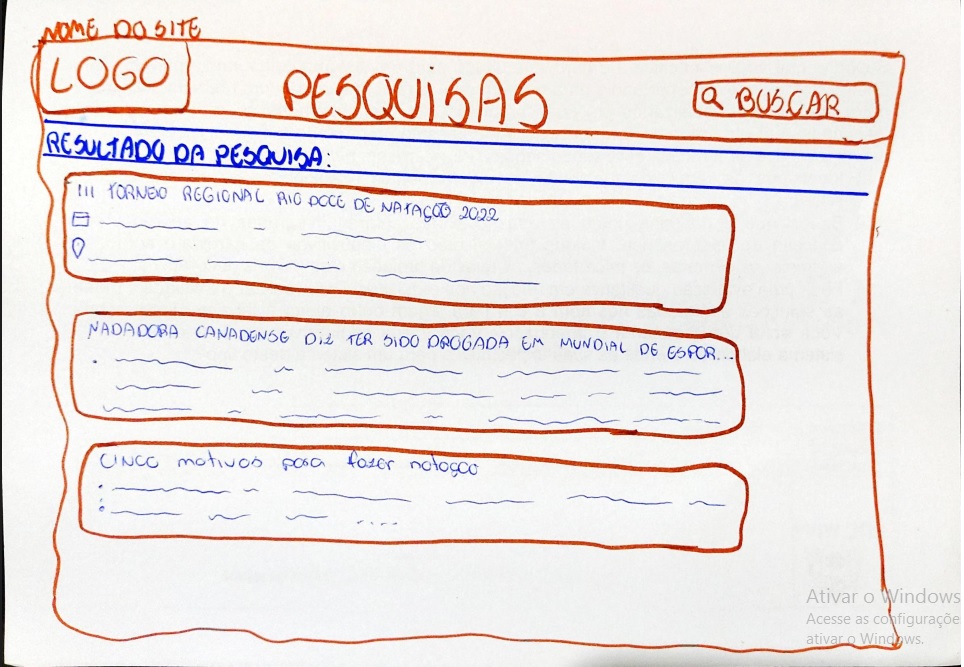 NOME DO SITE
LOGO
PESQUISAS
BUSCAR
RESULTADO DA PESQUISA:
III TORNEO REGIONAL RIO DOCE DE NATAÇÃO 2022
NADADORA CANADENSE Diz TER SIDO DROGADA EM MUNDIAL DE ESPOR...
CINCO motivos para fazer natação
Ativar o Windows
Acesse as configuraçõe
ativar o Windows.